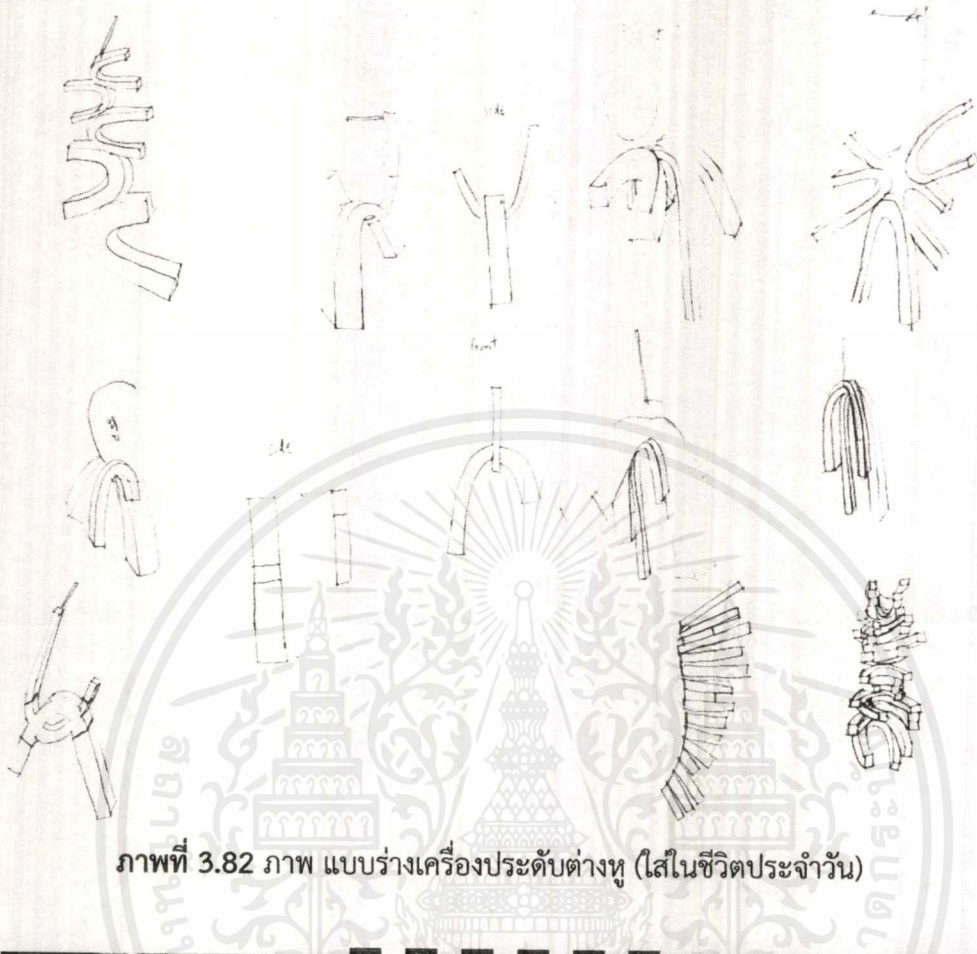 side
front
side
ภาพที่ 3.82 ภาพ แบบร่างเครื่องประดับต่างหู (ใส่ในชีวิตประจำวัน)